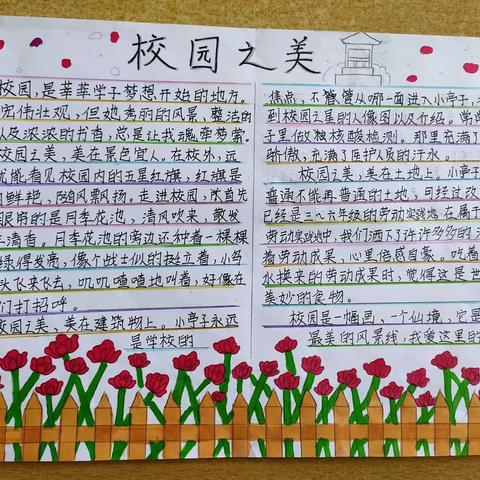 校园之美
校园,是莘莘学子梦想开始的地方。
宏伟壮观,但她秀丽的风景,整洁的
以及浓浓的书香,总是让我魂牵梦萦。
校园之美,美在景色宜人。在校外,远
就能看见校园内的五星红旗,红旗是
鲜艳,随风飘扬。走进校园,映首先
眼帘的是月季花池,清风吹来,散发
清香。月季花池的旁边还种着一棵棵
绿得发亮,像个战士似的挺立着,小鸟
飞来飞去,叽叽喳喳地叫着,好像在
们打招呼。
校园之美,美在建筑物上。小亭子永远
是学校的
焦点,不管管从哪一面进入小学子,
到校园之星的人像图以及介绍。常常
子里做核酸检测。那里充满了
骄傲,充满了医护人员的汗水。
校园之美,美在土地上。小亭
普通不能再普通的土地,可经过改
已经是三~六年级的劳动实践地,在属于
劳动实践地中,我们洒下了许许多多的
着劳动成果,心里倍感自豪。吃着
水换来的劳动成果时,觉得这是世
美妙的食物。
校园是一幅画、一个仙境,它是
最美的风景线,我爱这里的